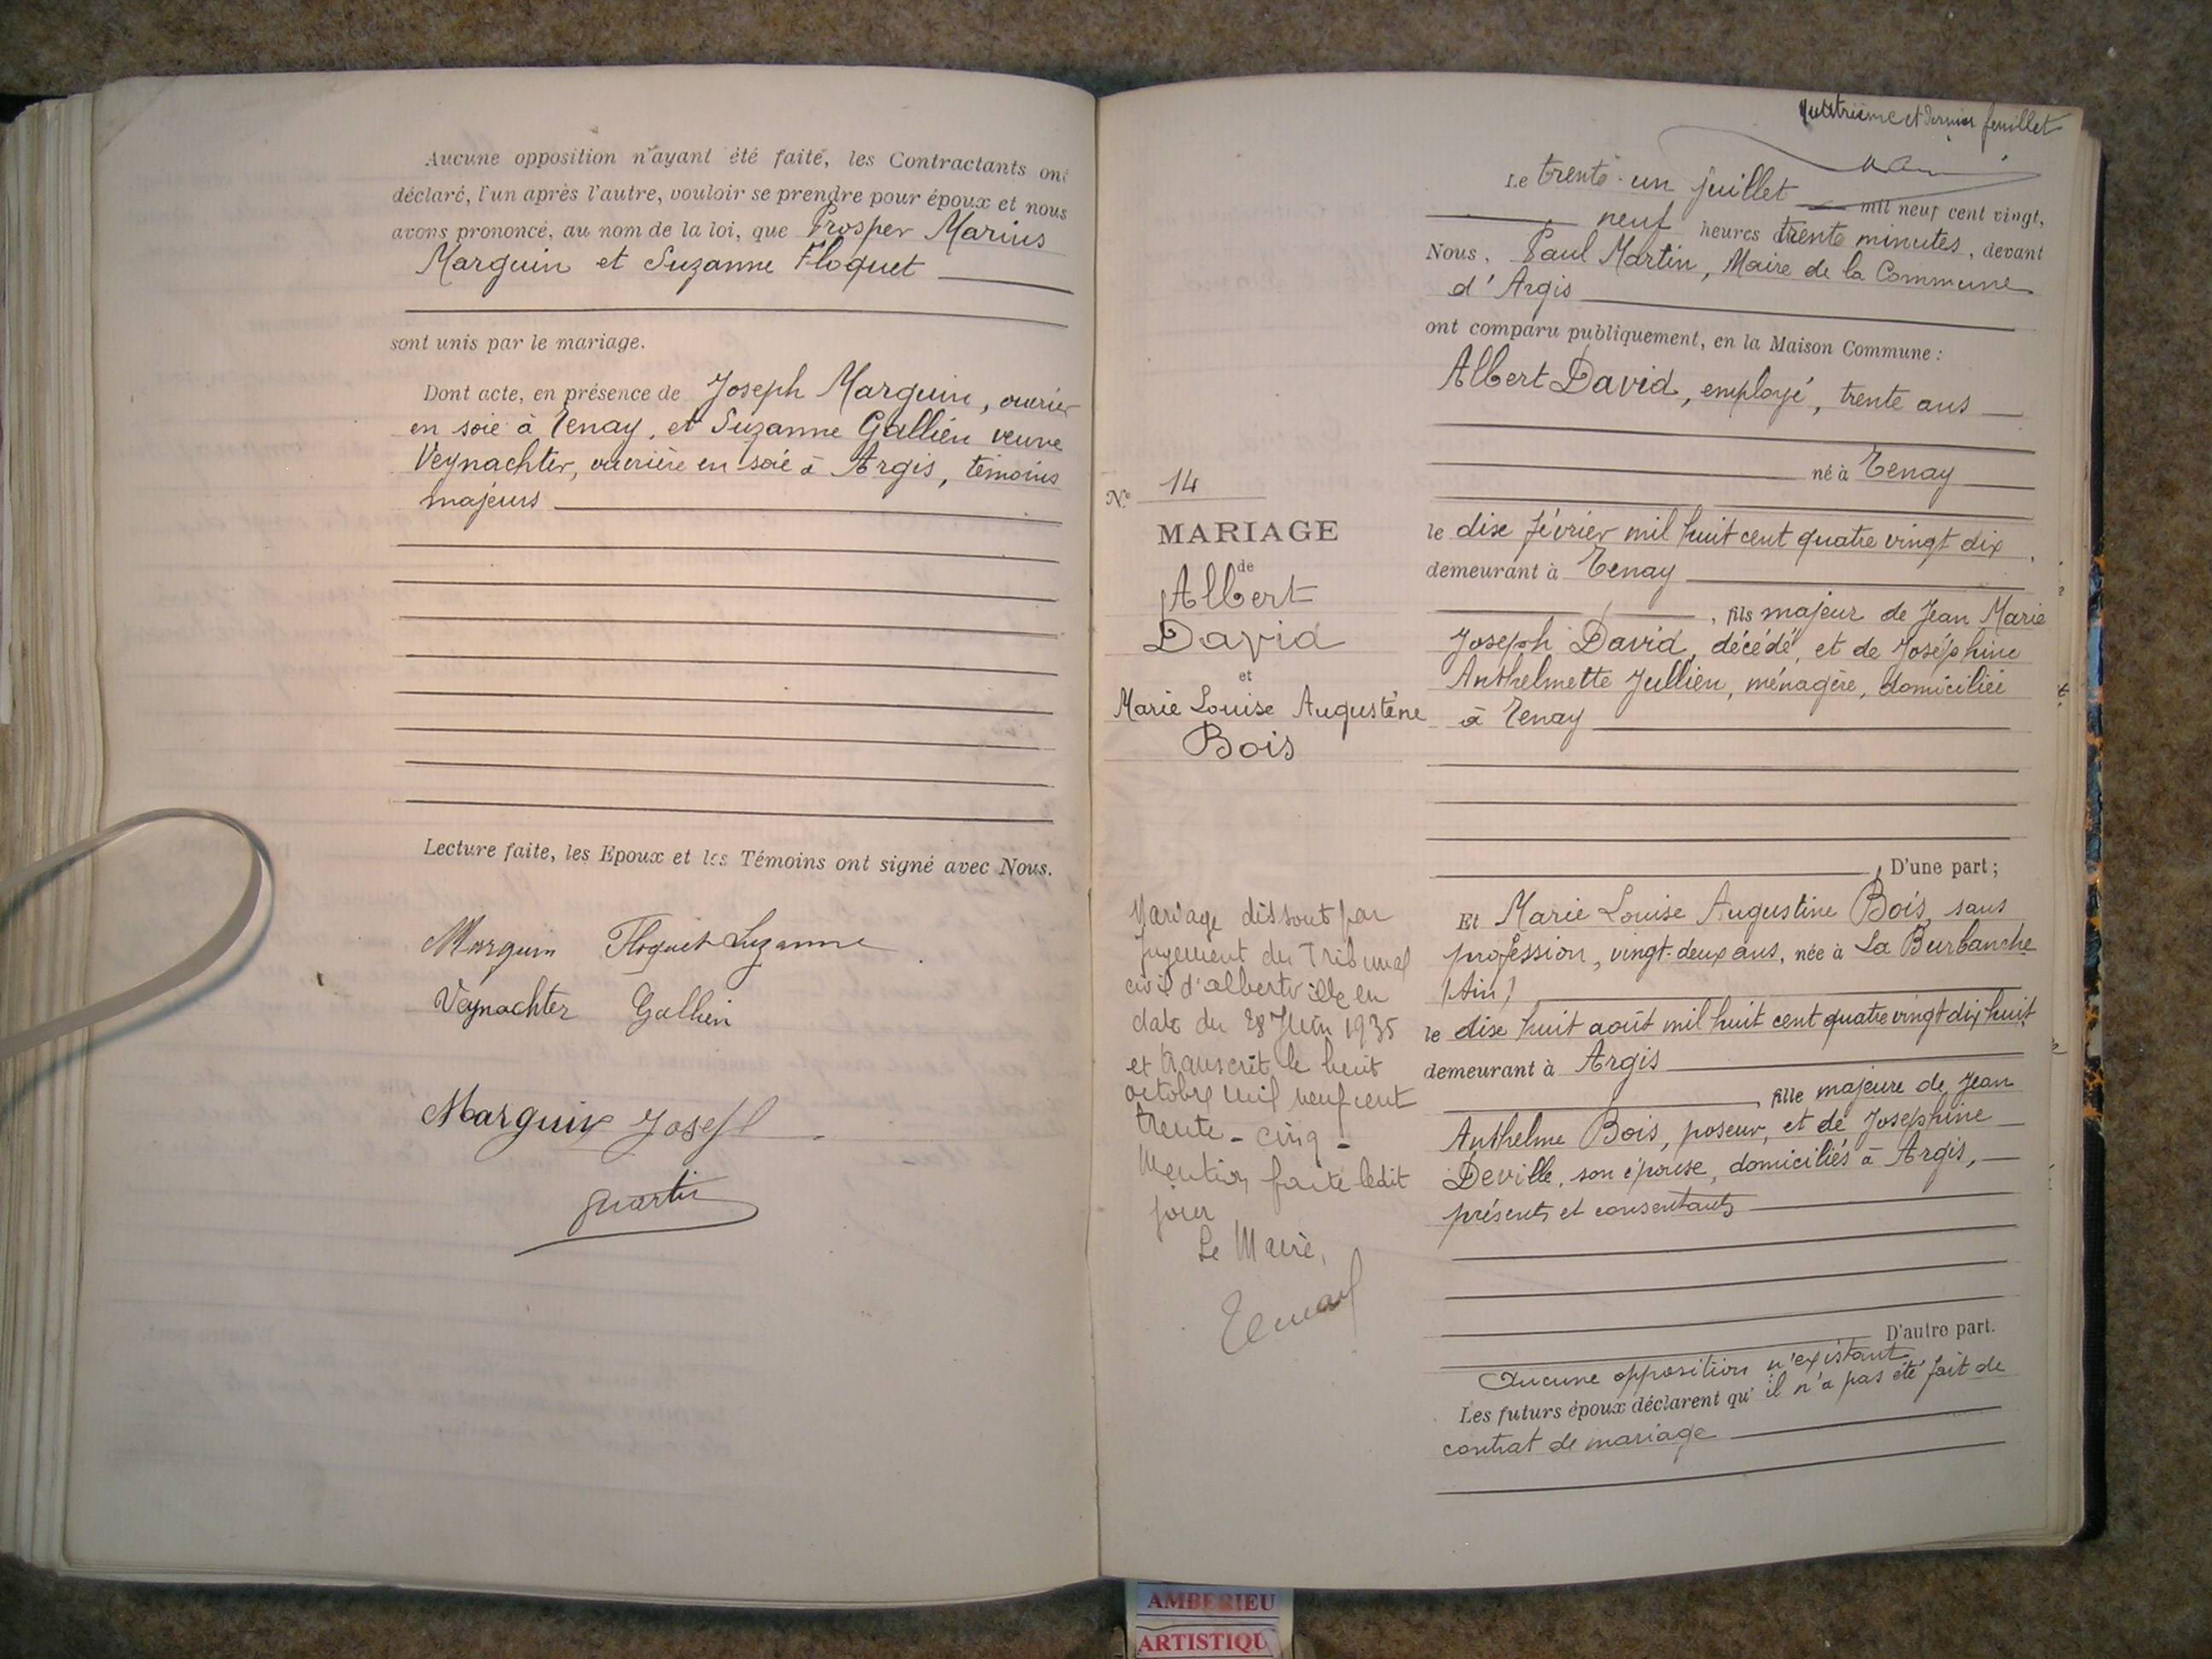 Aucune opposition n'ayant été faite, les Contractants ont
déclaré, l'un après l'autre, vouloir se prendre pour époux et nous
avons prononcé, au nom de la loi, que Prosper Marius
Marguin et Suzanne Floquet
sont unis par le mariage.
Dont acte, en présence de Joseph Marguin, ouvrier
en soie à Tenay, et Suzanne Gallien veuve
Veynachter, ouvrière en soie à Argis, témoins
majeurs
Lecture faite, les Epoux et les Témoins ont signé avec Nous.
Marguin Floquet Suzanne
Veynachter Gallien
Marguin Joseph
Martin
quatrième et dernier feuillet
Le trente-un juillet mil neuf cent vingt,
neuf heures trente minutes, devant
Nous, Paul Martin, Maire de la Commune
d'Argis
ont comparu publiquement, en la Maison Commune :
Albert David, employé, trente ans
né à Tenay
le dix février mil huit cent quatre vingt dix,
demeurant à Tenay
, fils majeur de Jean Marie
Joseph David, décédé, et de Joséphine
Anthelmette Jullien, ménagère, domiciliée
à Tenay
, D'une part ;
N° 14
MARIAGE
de
Albert
David
et
Marie Louise Augustine
Bois
Mariage dissout par
jugement du Tribunal
civil d'albertville en
date du 28 Juin 1935
et transcrit le huit
octobre mil neuf cent
trente-cinq-
Mention faite ledit
jour
Le Maire,
Et Marie Louise Augustine Bois, sans
profession, vingt-deux ans, née à La Burbanche
(Ain)
le dix huit août mil huit cent quatre vingt dix huit,
demeurant à Argis
, fille majeure de Jean
Anthelme Bois, poseur, et de Josephine
Deville, son épouse, domiciliés à Argis,
présents et consentants
D'autre part.
Aucune opposition n'existant
Les futurs époux déclarent qu'il n'a pas été fait de
contrat de mariage
AMBERIEU
ARTISTIQU